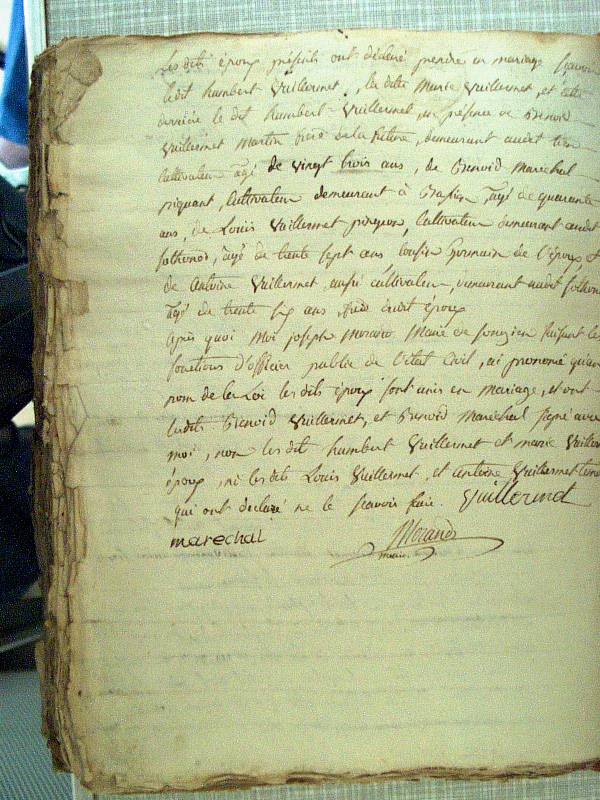 les dits époux présents ont déclaré prendre en mariage savoir
ledit humbert Vuillermet, la dite Marie Vuillermet, et cette
dernière le dit humbert Vuillermet, en présence de Benoid
Vuillermet Martin frère de la future, demeurant audit lieu
Cultivateur agé de vingt trois ans, de Benoid Maréchal
piquant, Cultivateur demeurant à, agé de quarante
ans, de Louis Vuillermet, Cultivateur demeurant audit
, agé de trente sept ans Cousin Germain de l'époux et
de Antoine Vuillermet, aussi cultivateur, demeurant audit
agé de trente six ans, frère dudit époux
après quoi Moi joseph Morand Maire de faisant les
fonctions d'officier public de l'état Civil, ai prononcé qu'au
nom de la Loi les dits époux sont unis en mariage, et ont
lesdits Benoid Vuillermet, et Benoid Maréchal signé avec
moi, non les dit humbert Vuillermet et marie Vuiller
époux, ni les dits Louis Vuillermet, et antoine Vuillermet
qui ont déclaré ne le savoir faire. Vuillermet
marechal Morand
maire.